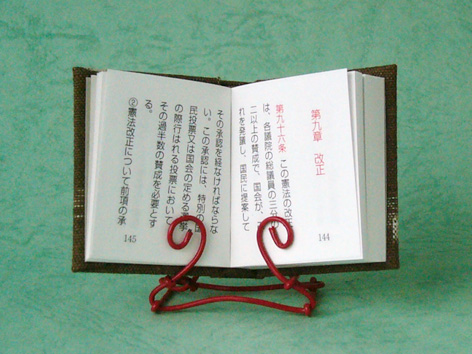 第九章 改正
第九十六条 この憲法の改正
は、各議院の総議員の三分の
二以上の賛成で、国会が、
れを発議し、国民に提案して
144
その承認を経なければならな
い。この承認には、特別の国
民投票又は国会の定める選挙
の際行はれる投票において
その過半数の賛成を必要とす
る。
②憲法改正について前項の承
145